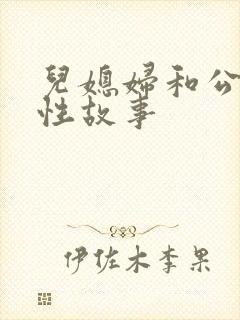 兒媳婦和公
性故事
伊佐木李果